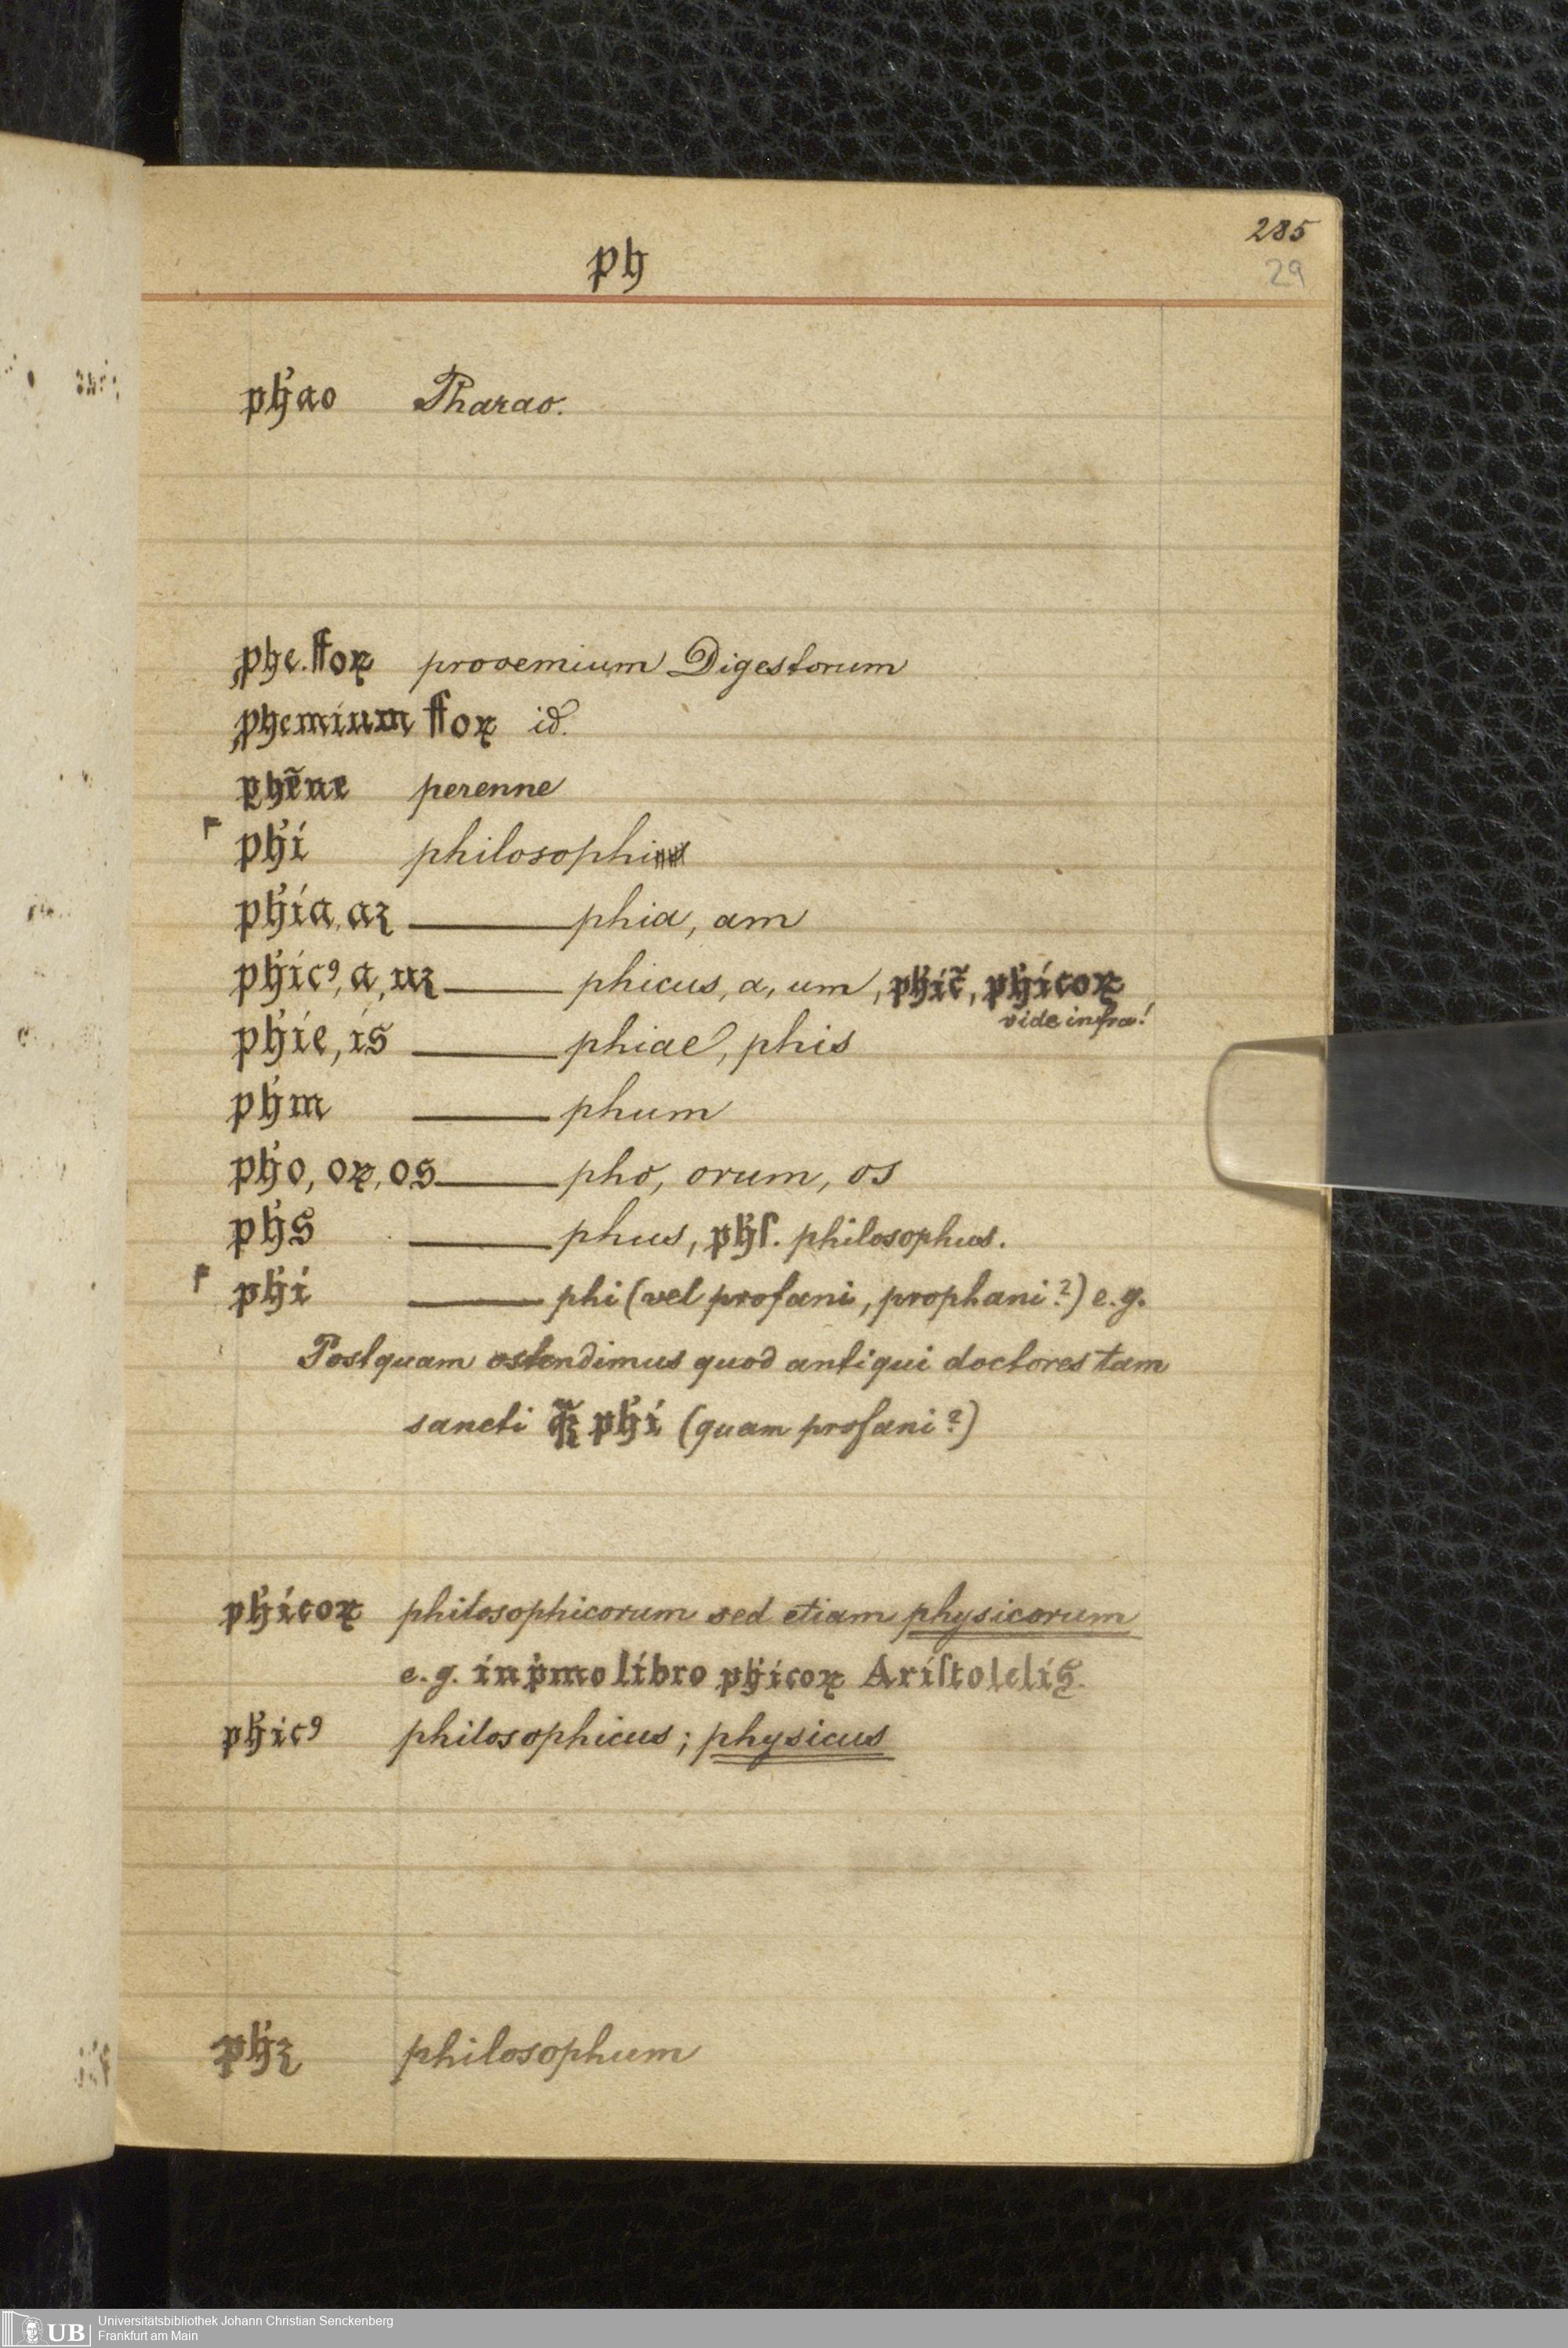 285
29
ph
pħao Pharao.
ꝓhe. ffoꝝ prooemium Digestorum
ꝓhemium ffoꝝ id.
ꝑhēne perenne
┌ pħi philosophi
pħia, aꝫ ——— phia, am
pħicꝰ, a, uꝫ ——— phicus, a, um, pħic̃, pħicoꝝ
vide infra!
pħie, is ——— phiae, phis
pħm ——— phum
pħo, oꝝ, os ——— pho, orum, os
pħs ——— phus, pħſ. philosophus.
┌ pħi ——— phi (vel profani, prophani?) e.g.
Postquam ostendimus quod antiqui doctores tam
sancti q̃ꝫ pħi (quam profani?)
pħicoꝝ philosophicorum sed etiam physicorum
e.g. in p̍mo libro pħicoꝝ Ariſtotelis.
pħicꝰ philosophicus; physicus
pħꝫ philosophum
UB Universitätsbibliothek Johann Christian Senckenberg
Frankfurt am Main